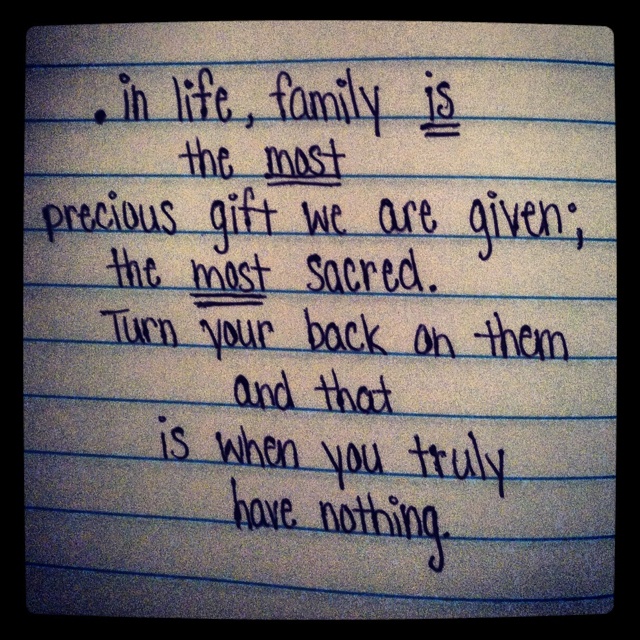 . in life, family is
the most
precious gift we are given;
the most sacred.
Turn your back on them
and that
is when you truly
have nothing.